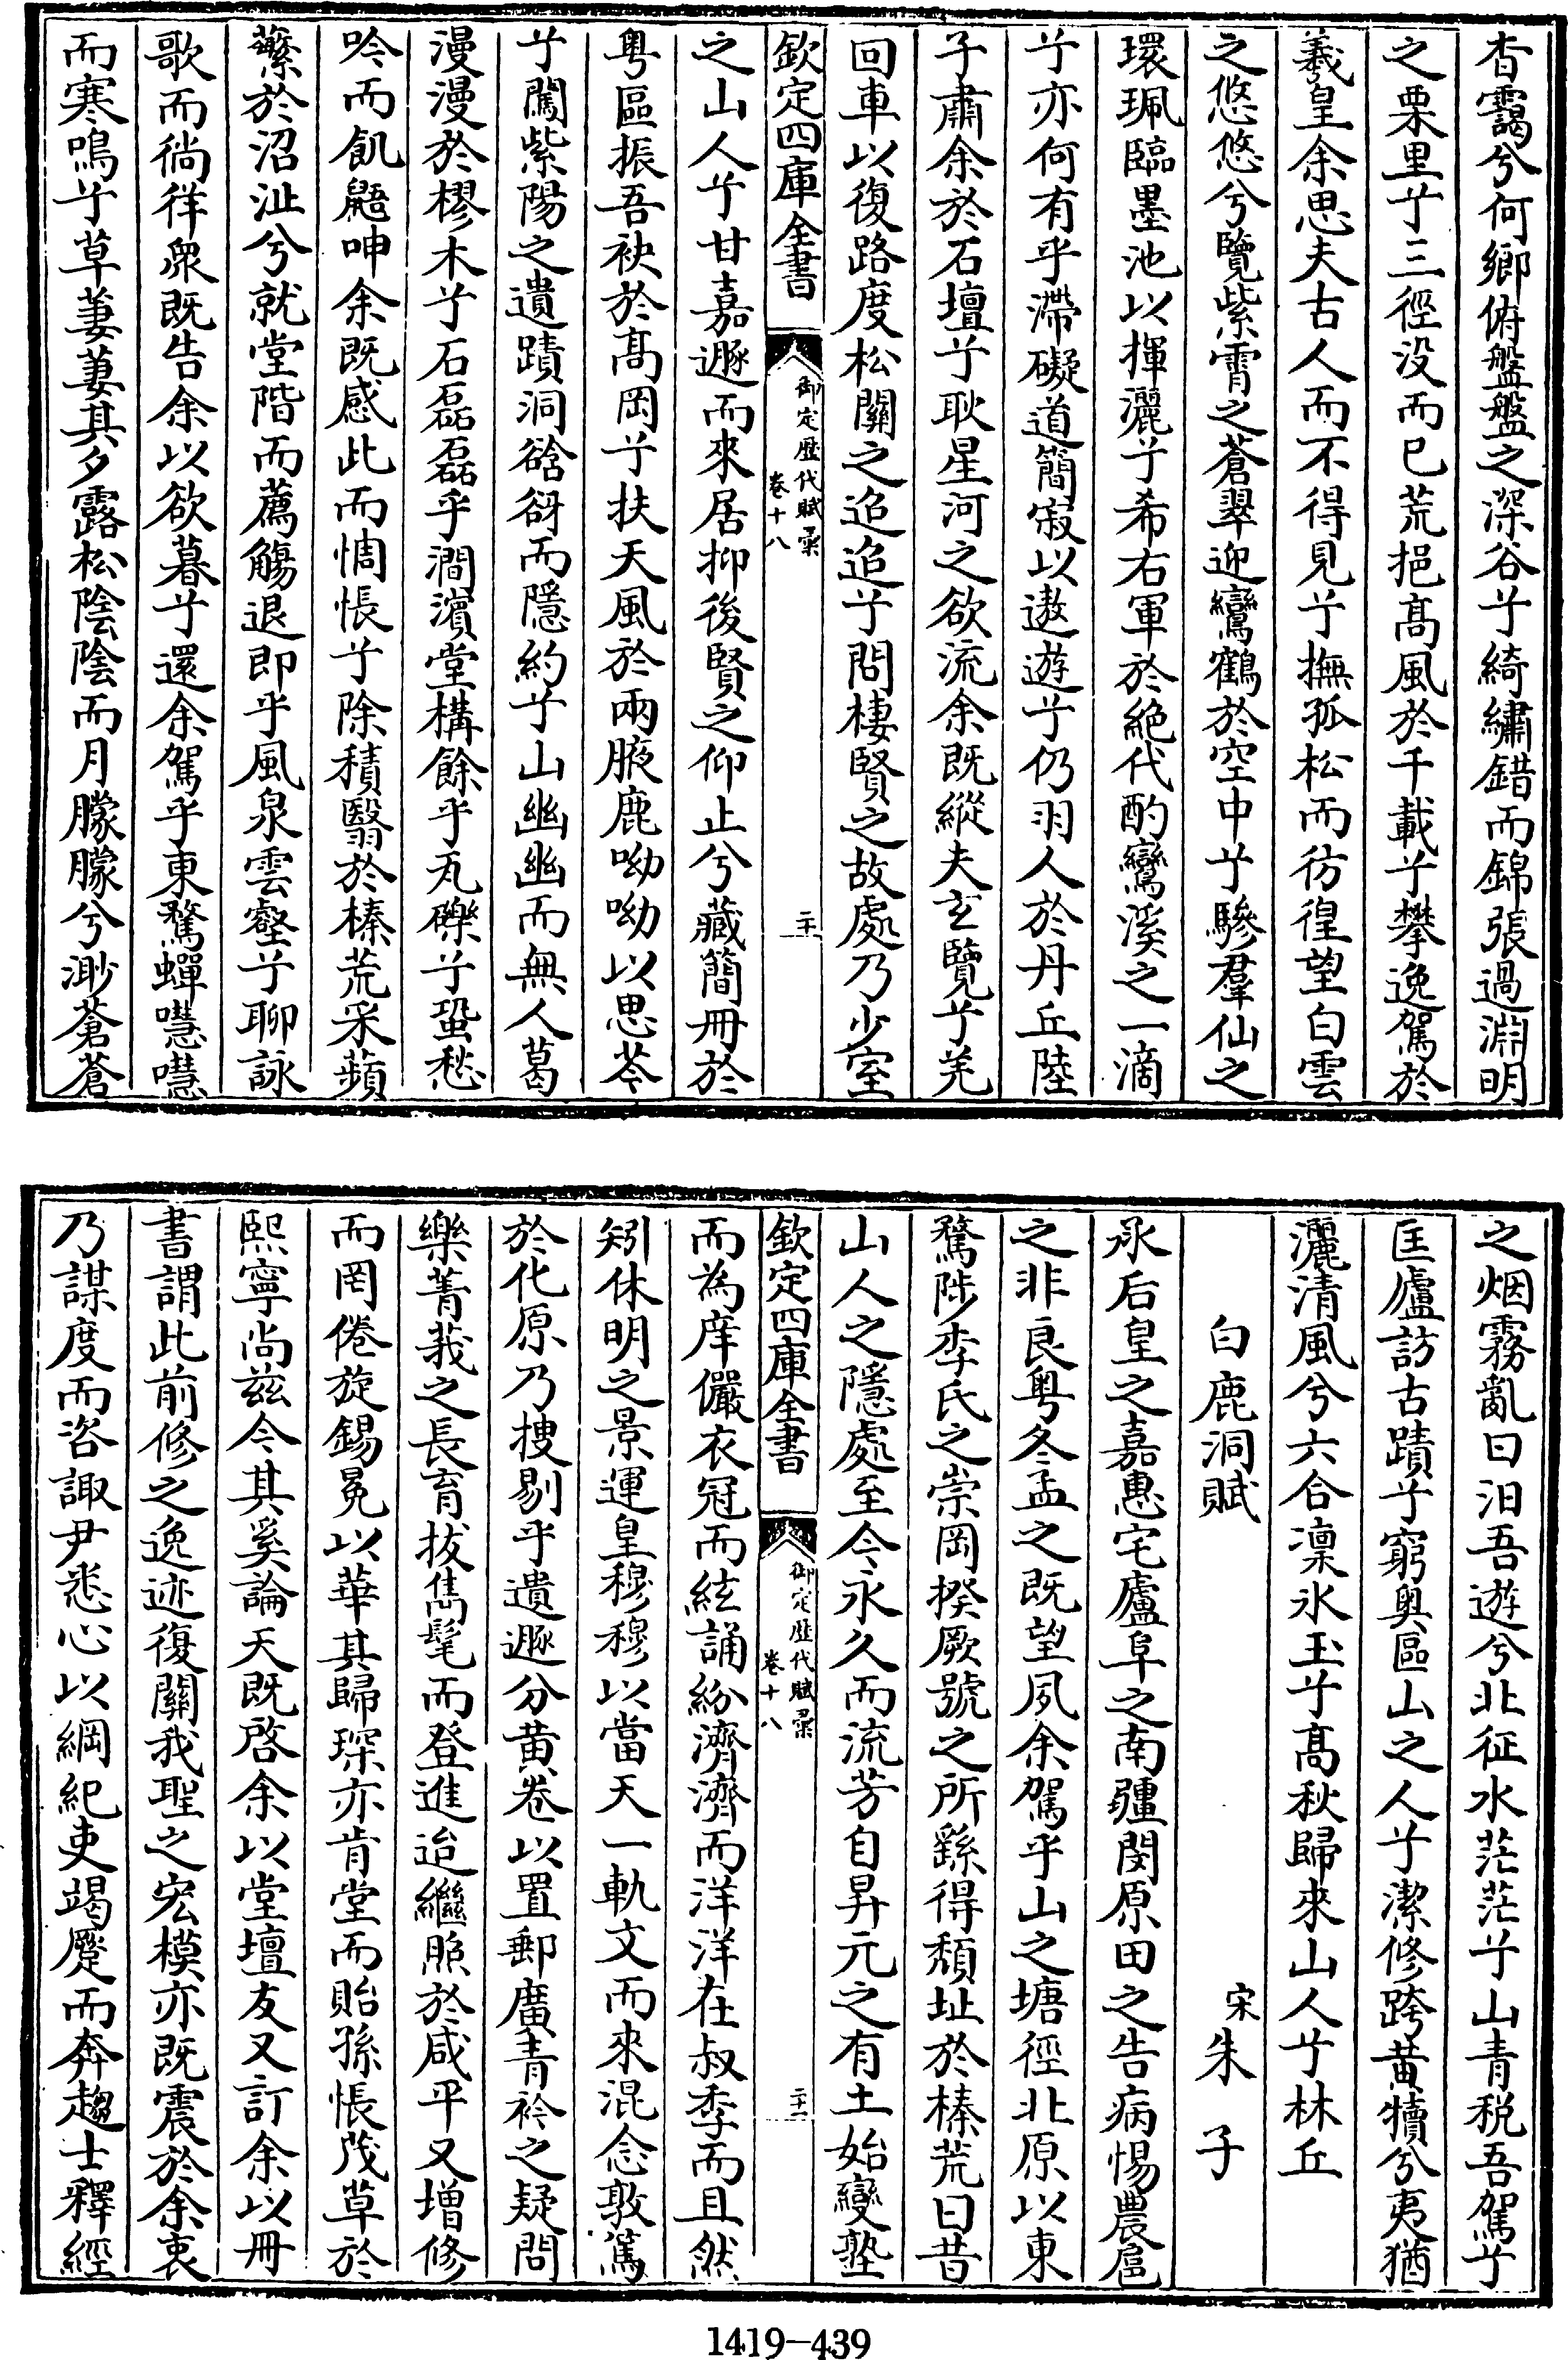 杳靄兮何鄉俯盤盤之深谷兮綺繡錯而錦張過淵明
之栗里兮三徑没而已荒挹髙風於千載兮攀逸駕於
羲皇余思夫古人而不得見兮撫孤松而彷徨望白雲
之悠悠兮覽紫霄之蒼翠迎鸞鶴於空中兮驂羣仙之
環珮臨墨池以揮灑兮希右軍於絶代酌鸞溪之一滴
兮亦何有乎滯礙道簡寂以遨遊兮仍羽人於丹丘陸
子肅余於石壇兮耿星河之欲流余既縱夫玄覽兮羌
回車以復路度松關之迢迢兮問棲賢之故處乃少室
欽定四庫全書
御定歴代賦彚
卷十八
二十
之山人兮甘嘉遯而來居抑後賢之仰止兮藏簡冊於
粤區振吾袂於髙岡兮扶天風於兩腋鹿呦呦以思苓
兮闖紫陽之遺蹟洞谽谺而隱約兮山幽幽而無人葛
漫漫於樛木兮石磊磊乎澗濱堂構餘乎瓦礫兮蛩愁
吟而飢鼯呻余既感此而惆悵兮除積翳於榛荒采蘋
蘩於沼沚兮就堂階而薦觴退即乎風泉雲壑兮聊詠
歌而徜徉衆既告余以欲暮兮還余駕乎東騖蟬嘒嘒
而寒鳴兮草萋萋其夕露松陰陰而月朦朦兮渺蒼蒼
之烟霧亂曰汨吾遊兮北征水茫茫兮山青税吾駕兮
匡廬訪古蹟兮窮奥區山之人兮潔修跨黄犢兮夷猶
灑清風兮六合凛氷玉兮髙秋歸來山人兮林丘
白鹿洞賦
宋朱子
承后皇之嘉惠宅廬阜之南疆閔原田之告病惕農扈
之非良粤冬孟之既望夙余駕乎山之塘徑北原以東
騖陟李氏之崇岡揆厥號之所繇得頽址於榛荒曰昔
山人之隱處至今永久而流芳自昇元之有土始變塾
欽定四庫全書
御定歴代賦彚
卷十八
二十一
而為庠儼衣冠而絃誦紛濟濟而洋洋在叔季而且然
矧休明之景運皇穆穆以當天一軌文而來混念敦篤
於化原乃搜剔乎遺遯分黄卷以置郵廣青衿之疑問
樂菁莪之長育拔雋髦而登進迨繼照於咸平又增修
而罔倦旋錫冕以華其歸琛亦肯堂而貽孫悵茂草於
熙寧尚兹今其奚論天既啓余以堂壇友又訂余以冊
書謂此前修之逸迹復關我聖之宏模亦既震於余衷
乃謀度而咨諏尹悉心以綱紀吏竭蹷而奔趨士釋經
1419-439